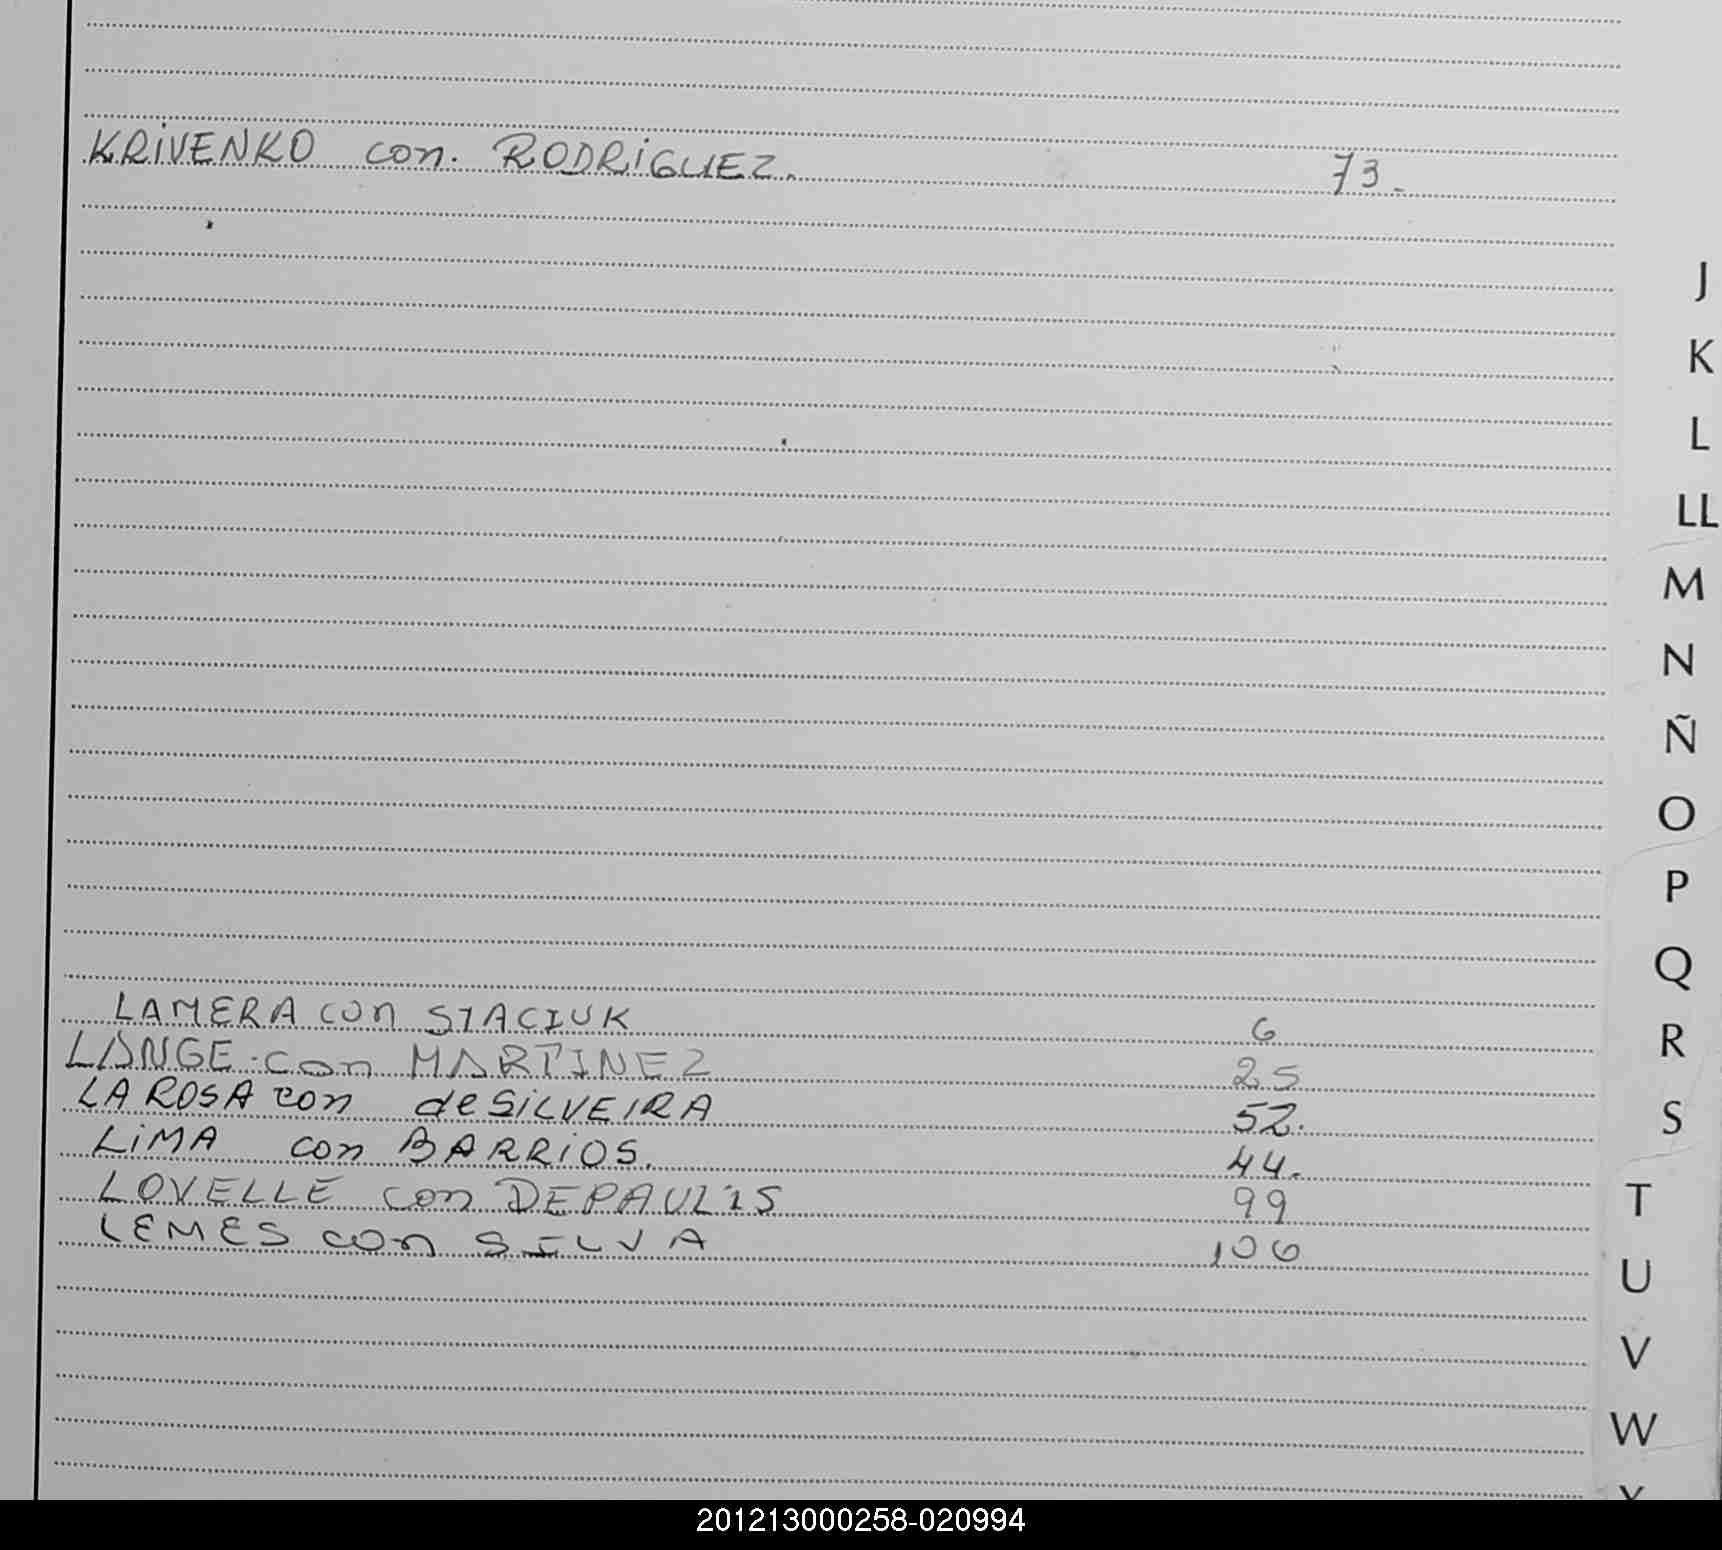 KRIVENKO con. RODRIGUEZ. 73.-
J
K
L
LL
M
N
Ñ
O
P
Q
LAMERA con STACIUK 6
R
LANGE. con MARTINEZ 25
LA ROSA con de SILVEIRA 52.
S
LIMA con BARRIOS. 44.-
LOVELLE con DEPAULIS 99
T
LEMES con SILVA 106
U
V
W
201213000258-020994